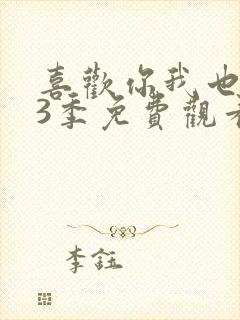 喜歡你我也
3季免費觀看
李鈺